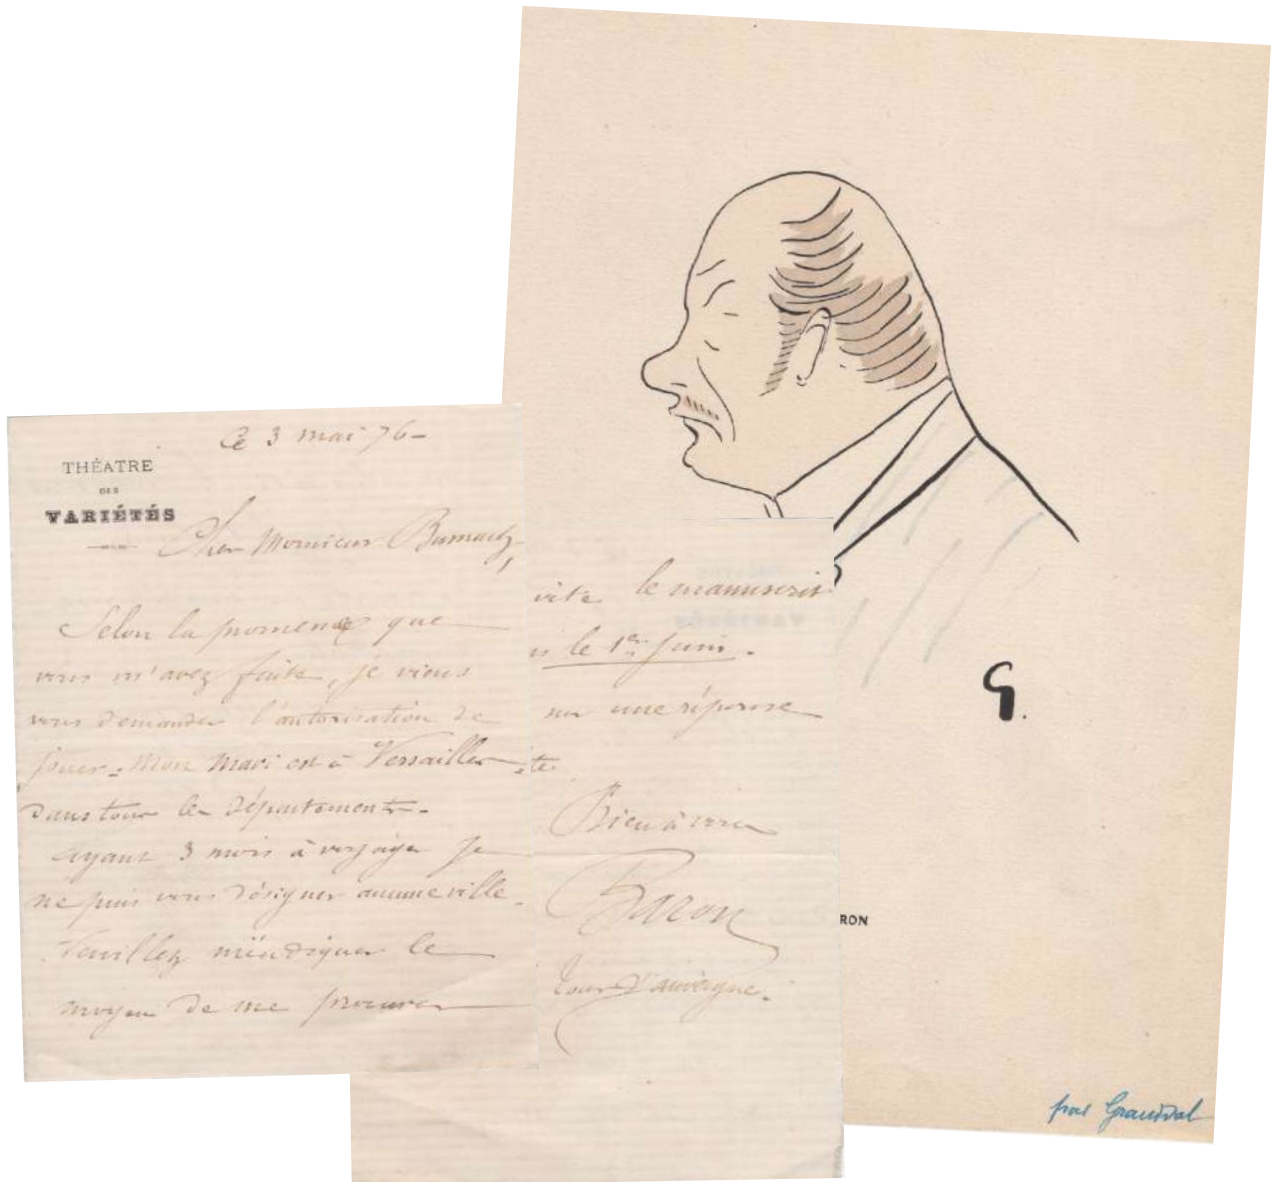 Ce 3 mai 76-
THÉATRE
DES
VARIÉTÉS
Cher Monsieur
Selon la promesse que
vous m'avez faite, je viens
vous demander l'autorisation de
jouer - Mon Mari est à Versailles -
dans tous les Départements -
Ayant 3 mois à voyager je
ne puis vous désigner aucune ville -
Veuillez m'indiquer le
moyen de me procurer
vite le manuscrit
le 1er Juin.
une réponse
te.
Bien à vous
Baron
Tour d'auvergne.
G.
RON
par Grandval